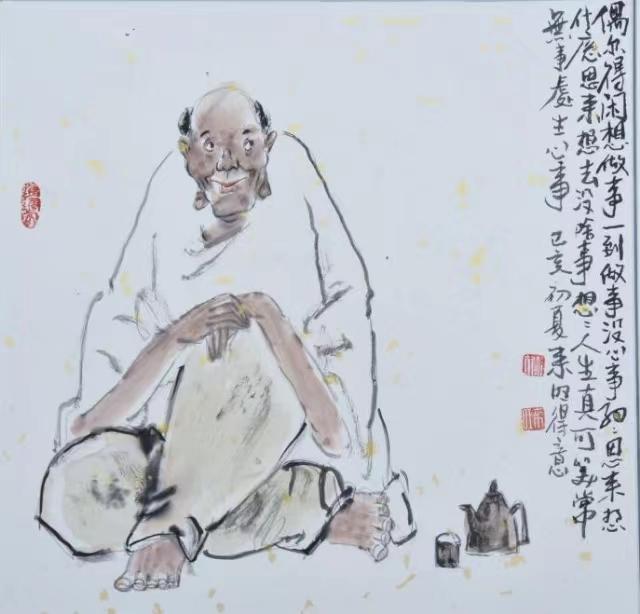 偶尔得闲想做事一到做事没心事细〻思来想
什庅思来想去没啥事想〻人生真可笑常
無事處生心事 己亥初夏来得意